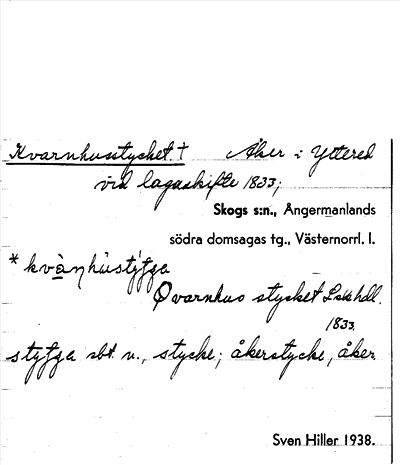 Kvarnhusstycket. † Åker i Yttered
vid lagaskifte 1833;
Skogs s:n., Ångermanlands
södra domsagas tg., Västernorrl. l.
Qvarnhus stycket Lskhdl.
1833.
sbt. n., stycke; åkerstycke, åker
Sven Hiller 1938.